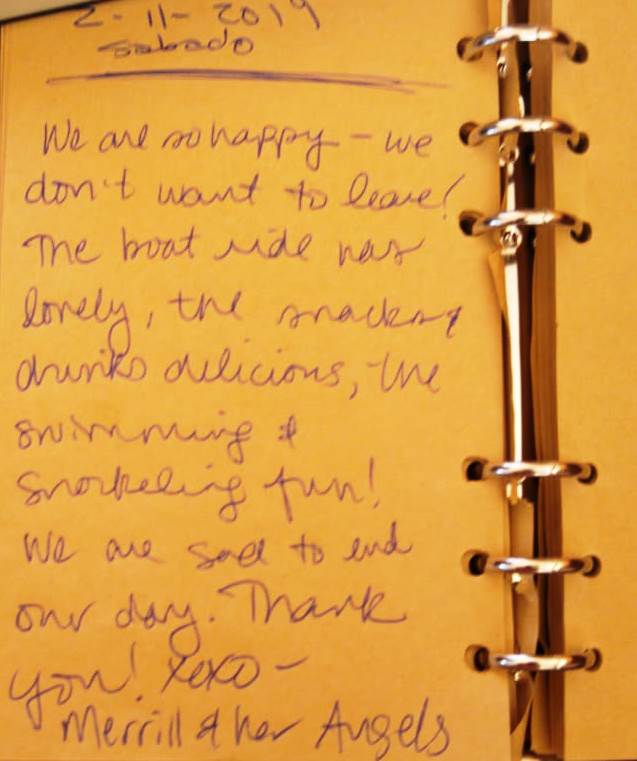 2-11-2019
Sabado
We are so happy - we
don't want to leave!
The boat ride was
lovely, the snacks &
drinks delicious, the
swimming &
snorkeling fun!
We are sad to end
our day. Thank
you! xoxo -
Merrill & her Angels